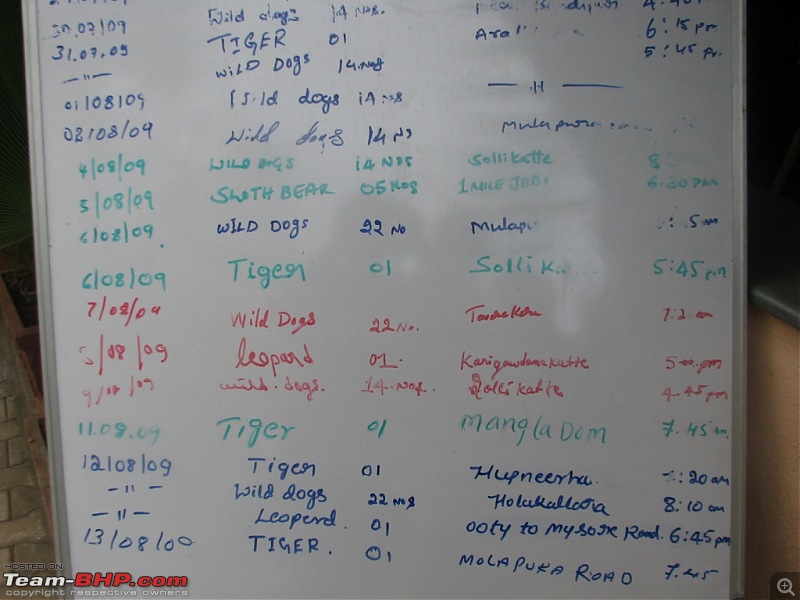 30.07/09 Wild dogs 14 Nos.
31.07.09 TIGER 01 6:15 pm
—"— WILD DOGS 14.Nos 5:45
01/08/09 dogs 14 Nos — " —
02/08/09 Wild dogs 14 Ns
4/08/09 WILD DOGS 14 Nos Sollikatte
5/08/09 SLOTH BEAR 05 Nos 1 MILE JEDI 6.30 PM
6/08/09. WILD DOGS 22 No
6/08/09 Tiger 01 5:45 pm
7/08/09 Wild Dogs 22 No.
/08/09 leopard 01. Kanigowdanakatte pm
9/08/09 wild. dogs. 14. Nos. Sollikatte 4.45 pm
11.08.09 Tiger 01 Mangla Dam 7.45
12/08/09 Tiger 01 20 am
— " — Wild dogs 22 Nos 8:10 am
— " — Leoperd. 01 ooty to Mysore Road. 6:45 pm
13/08/09 TIGER. 01 MOLAPURA ROAD 7.45
HOSTED ON
Team-BHP.com
copyright respective owners